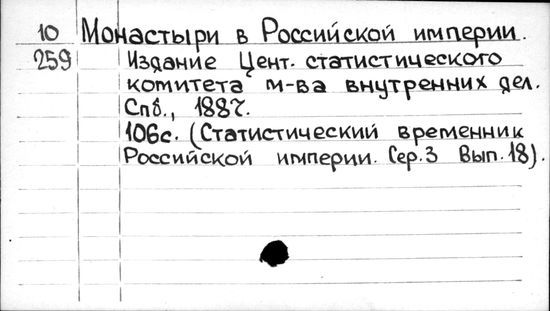 10 Монастыри в Российской империи.
259 Издание Цент. статистического
комитета м-ва внутренних дел.
Спб., 1887.
106с. (Статистический временник
Российской империи. Сер.3 Вып.18).